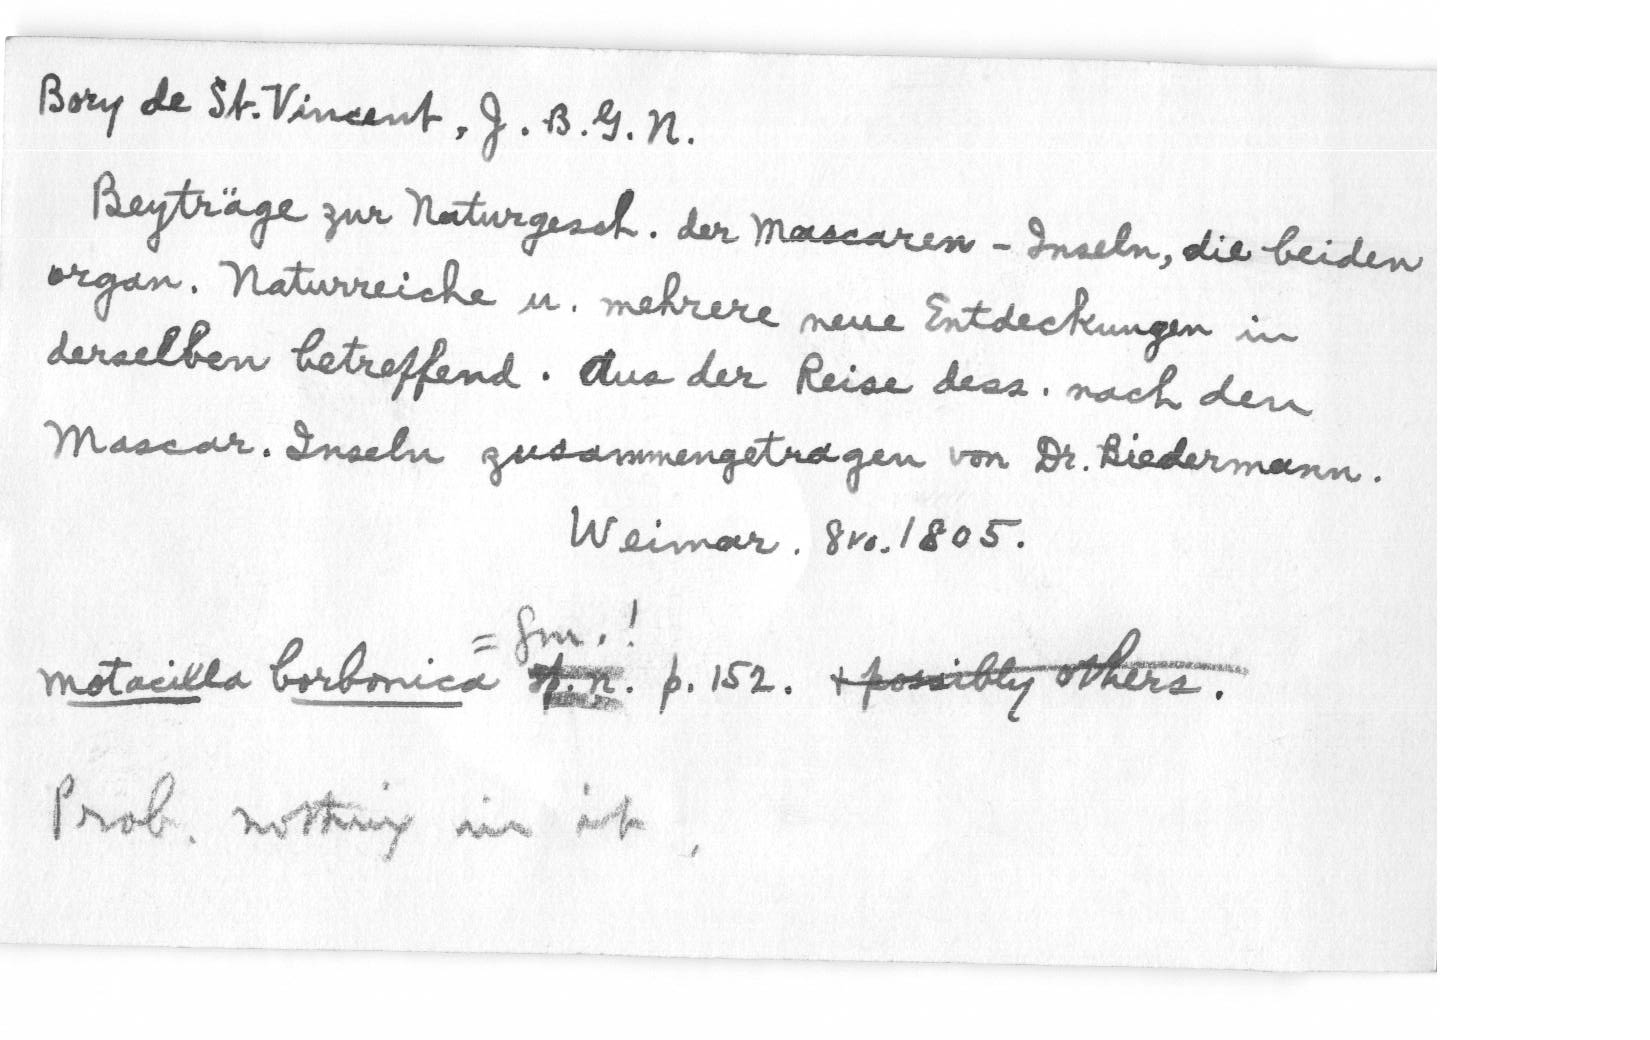 Bory de St. Vincent, J. B. G. N.
Beyträge zur Naturgesch. der Mascaren - Inseln, die beiden
organ. Naturreiche u. mehrere neue Entdeckungen in
derselben betreffend. Aus der Reise dess. nach den
Mascar. Inseln zusammengetragen von Dr. Biedermann.
Weimar. 8vo. 1805.
= Gm. !
Motacilla borbonica sp. n. p. 152. + possibly others.
Prob. nothing in it.